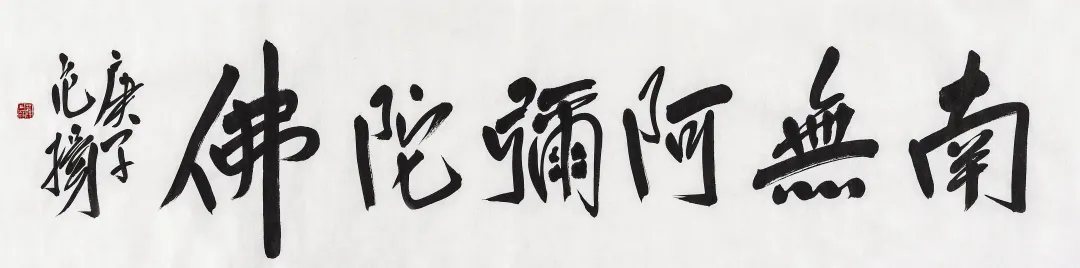 南無阿彌陀佛
庚子
范揚